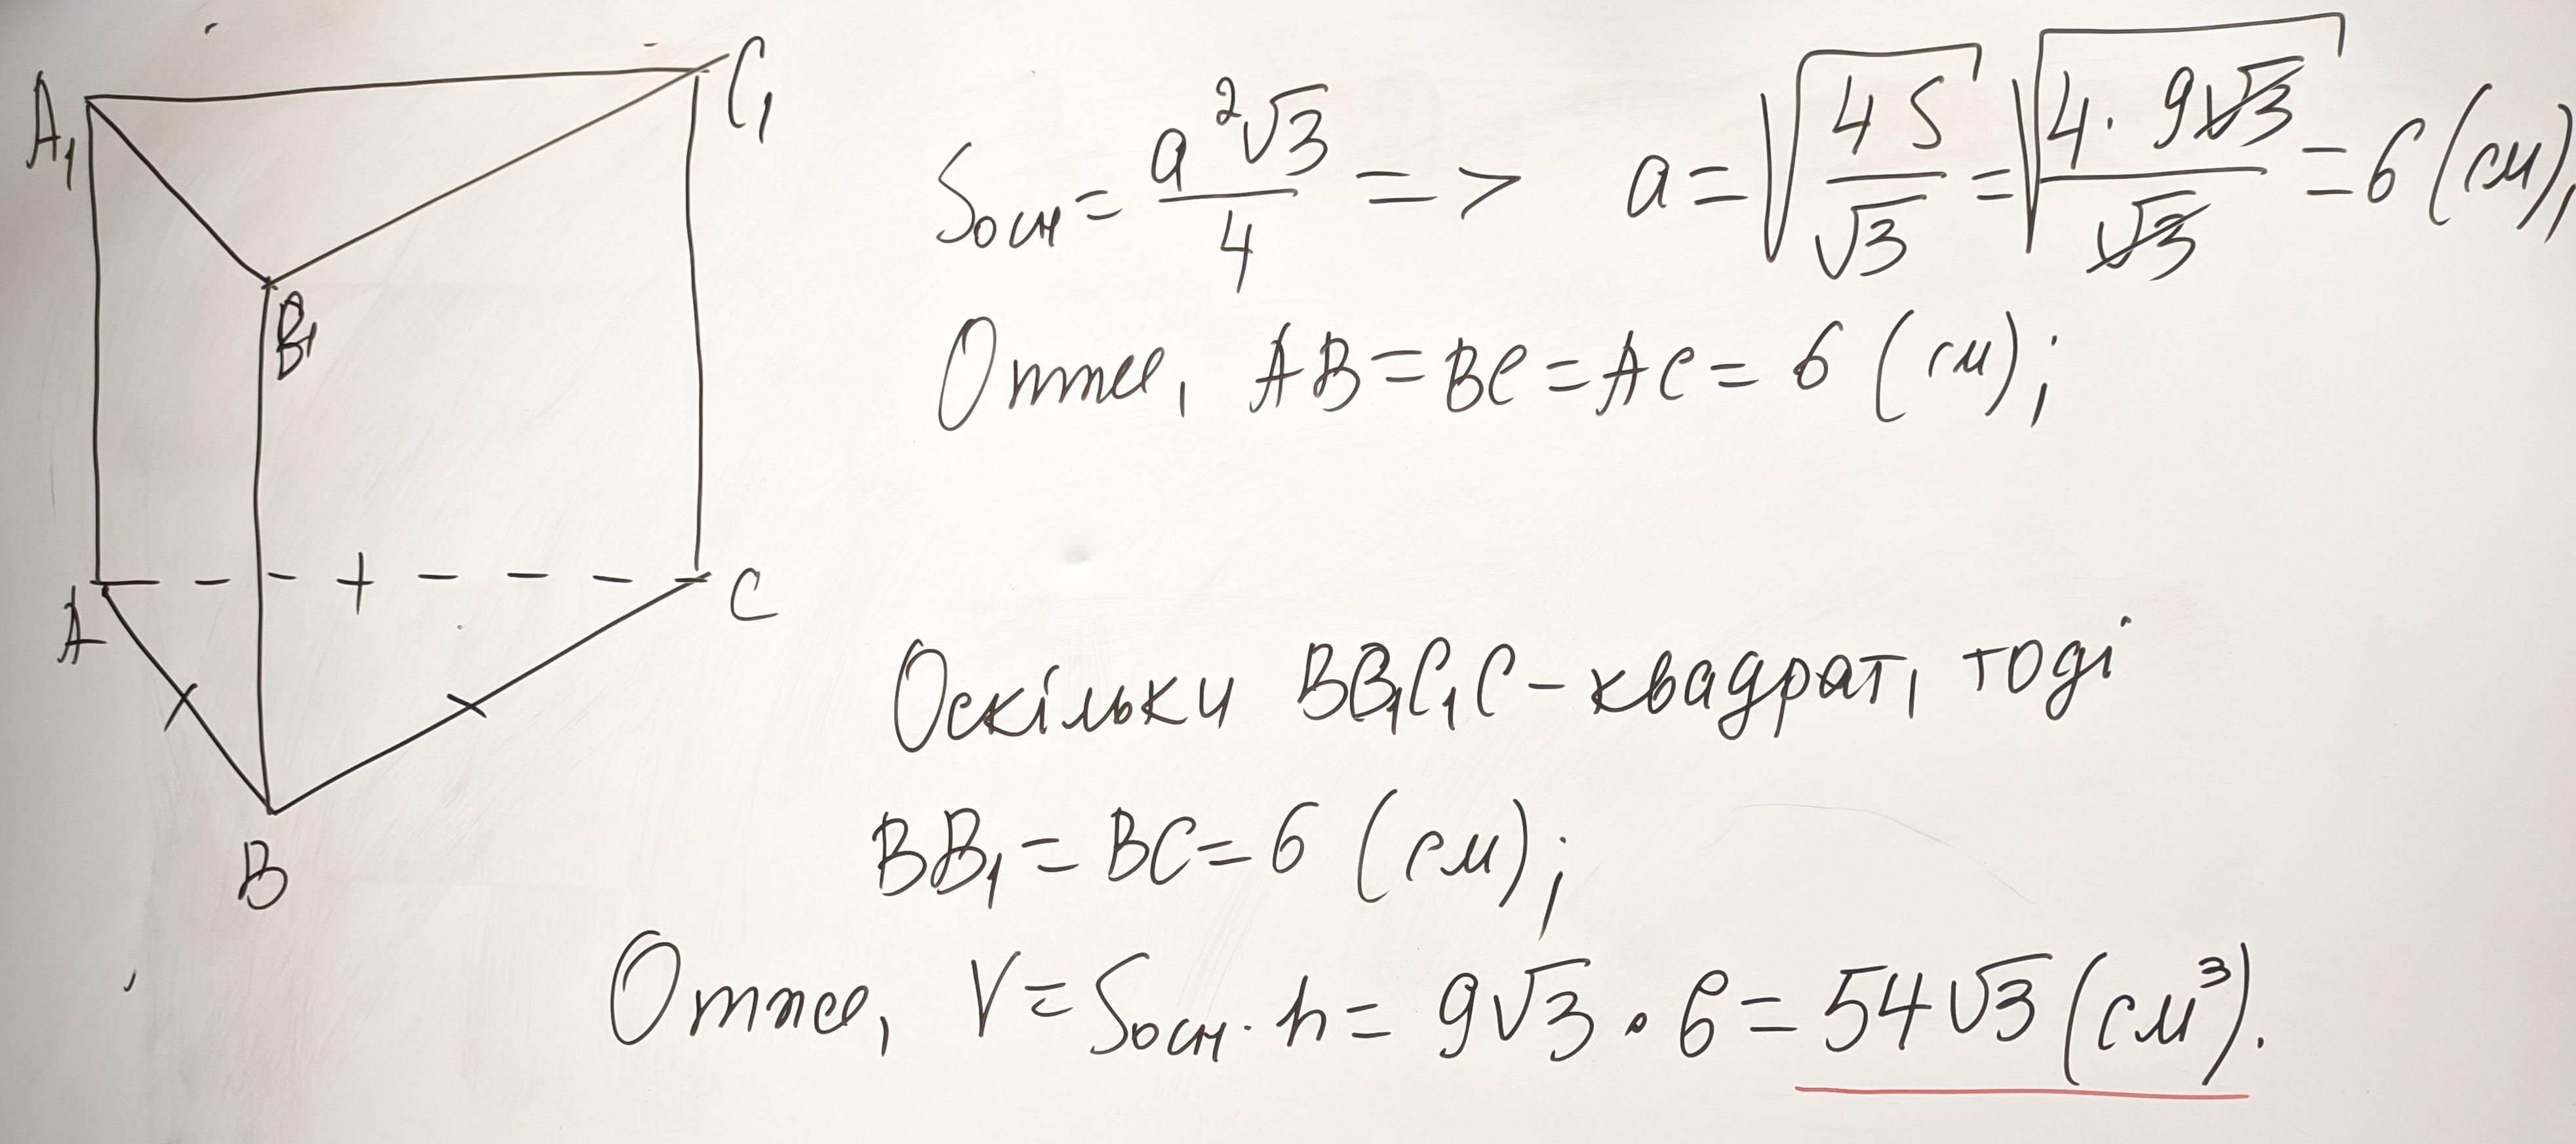 A₁
C₁
B₁
A
C
B
Sосн = a²√3/4 => a = √(4S/√3) = √(4·9√3/√3) = 6 (см),
Отже, AB = BC = AC = 6 (см);
Оскільки BB₁C₁C – квадрат, тоді
BB₁ = BC = 6 (см);
Отже, V = Sосн · h = 9√3 · 6 = 54√3 (см³).